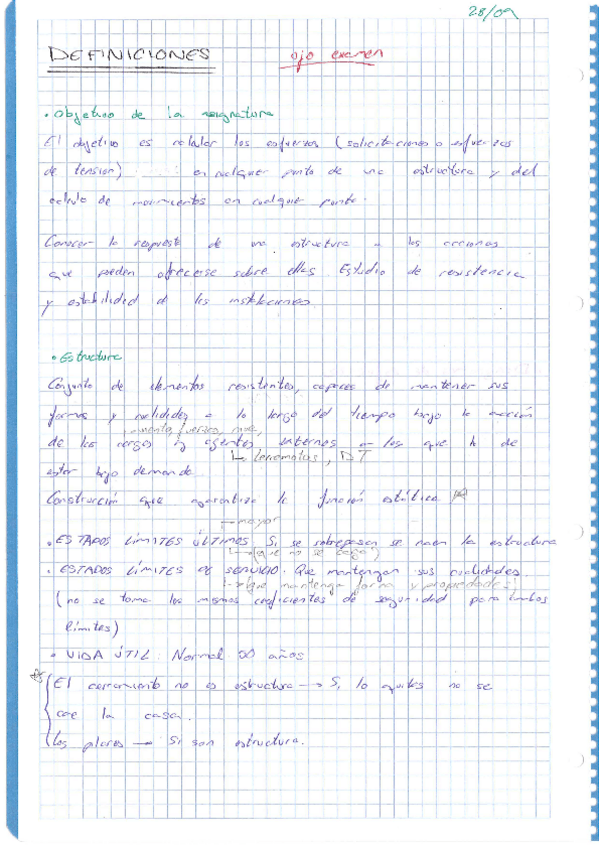 28/09
DEFINICIONES ojo examen
• Objetivo de la asignatura
El objetivo es calcular los esfuerzos (solicitaciones o esfuerzos
de tension) en cualquier punto de una estructura y del
calculo de movimientos en cualquier punto.
Conocer la respuesta de una estructura a las acciones
que pueden ofrecerse sobre ellas. Estudio de resistencia
y estabilidad d las instalaciones.
• Estructura
Conjunto de elementos resistentes, capaces de mantener sus
formas y cualidades a lo largo del tiempo bajo la acción
viento, nieve,
de las cargas y agentes externos a los que ha de
↳ terremotos, DT
estar bajo demanda
Construcción que garantiza la función estática
mayor
• ESTADOS LÍMITES ÚLTIMOS. Si se sobrepasan se caen la estructura
↳ (que no se caiga)
• ESTADOS LÍMITES DE SERVICIO. Que mantengan sus cualidades.
↳ (que mantenga forma y propiedades)
(no se toma los mismos coeficientes de seguridad para ambos
límites)
• VIDA ÚTIL: Normal 50 años
El cerramiento no es estructura → Si lo quitas no se
cae la casa.
Los pilares → Si son estructura.